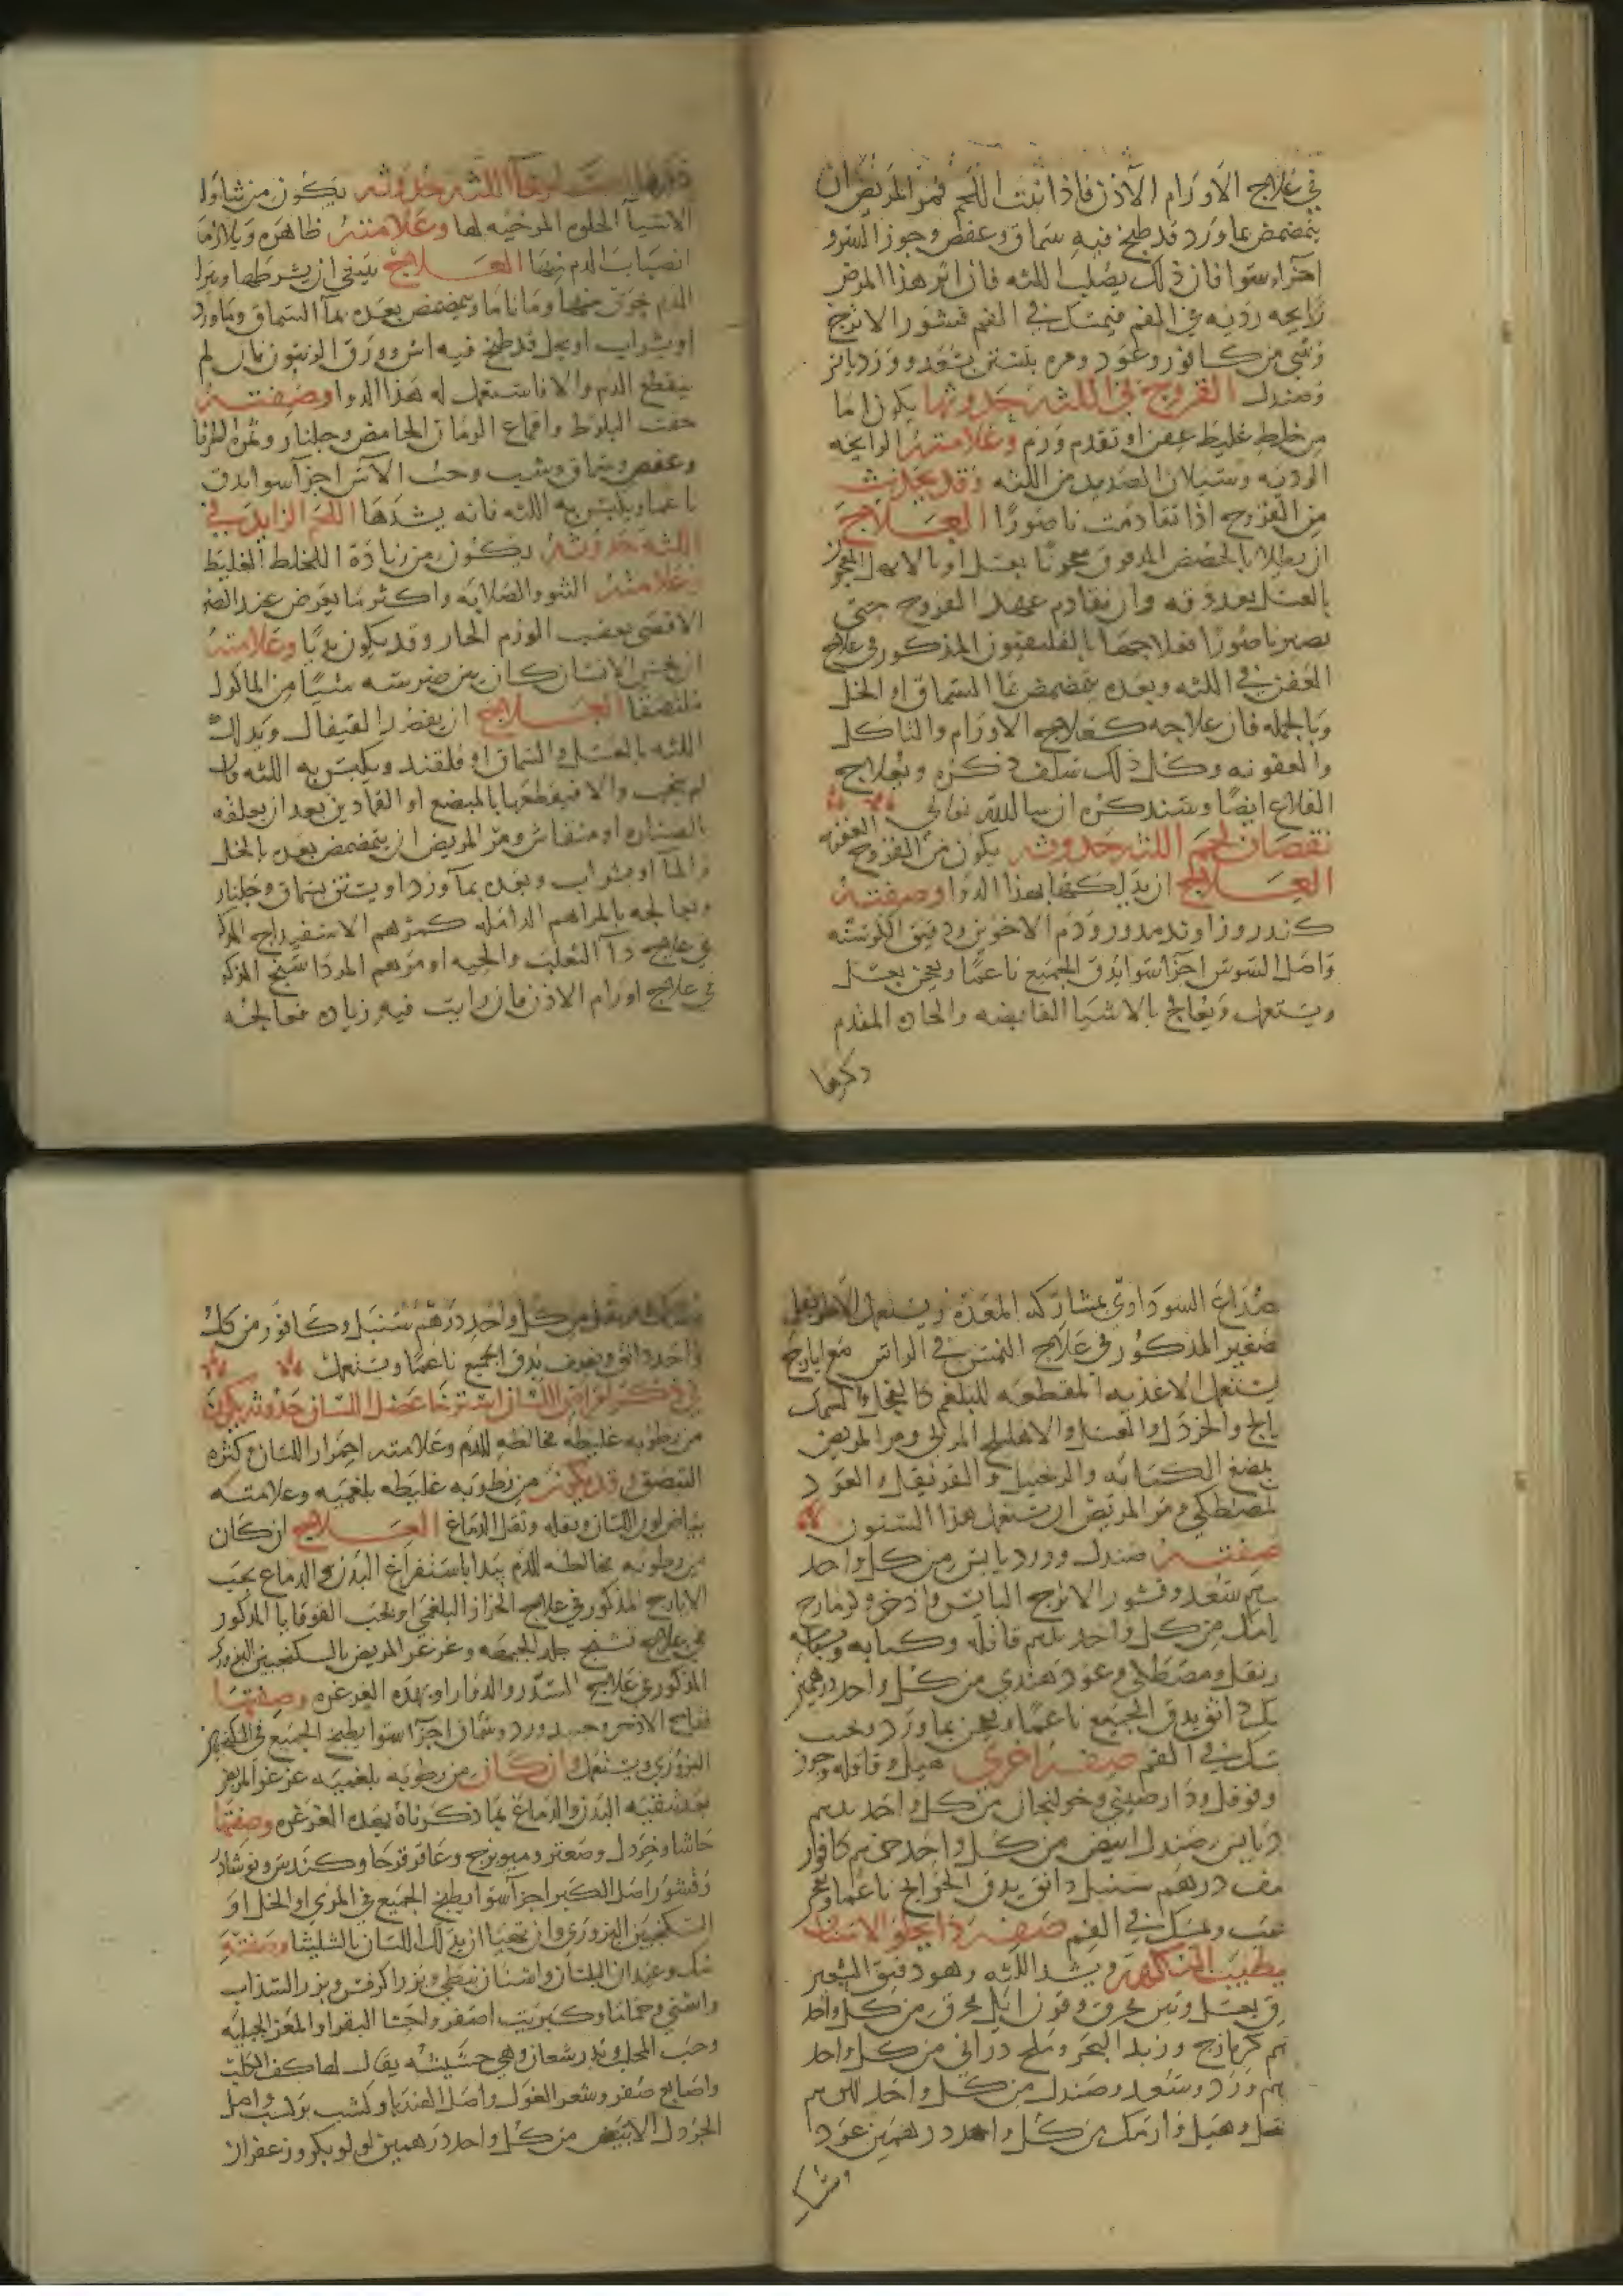 في علاج الاورام الآذن فاذا نبت اللحم فمر المريض ان
يتمضمض بماورد قد طبخ فيه سماق وعفص وجوز السرو
اجزاء سوا فان ذلك يصلب اللثه فان اثر هذا المرض
رايحه رديه في الفم فيمسك في الفم قشور الاترج
وشي من كافور وعود ومره يستن بسعد وورد يابس
وصندل القروح في اللثه حدوثها يكون اما
من خلط غليظ عفن او تقدم ورم وعلامته الرايحه
الرديه وسيلان الصديد من اللثه وقد يحدث
من القروح اذا تقادمت ناصورا العلاج
ان يطلا بالحضض المدقوق معجونا بعسل او بالابهل المعجون
بالعسل بعد دقه وان تقادم عهد القروح حتى
يصير ناصورا فعلاجها بالفلفيون المذكور في علاج
العفن في اللثه وبعده يتمضمض بماء السماق او الخل
وبالجمله فان علاجه كعلاج الاورام والتاكل
والعفونه وكل ذلك سلف ذكره وبعلاج
القلاع ايضا وسنذكره ان شا الله تعالى
نقصان لحم اللثه حدوثه يكون من القروح العفنه
العلاج ان يدلكها بهذا الدوا وصفته
كندر وزراوند مدور ودم الاخوين ودقيق الكرسنه
واصل السوس اجزا سوا يدق الجميع ناعما ويعجن بعسل
ويستعمل ويعالج بالاشيا القابضه والحاره المقدم
ذكرها
ذكرها استرخا اللثه حدوثه يكون من تناول
الاشيا الحلوه المرخيه لها وعلامته ظاهره ويلازمها
انصباب الدم منها العلاج ينبغي ان يشرطها ويترك
الدم يجري منها زمانا ما ويتمضمض بعده بماء السماق وماورد
او بشراب او بخل قد طبخ فيه اس وورق الزيتون فان لم
ينقطع الدم والا فاستعمل له هذا الدوا وصفته
جفت البلوط واقماع الرمان الحامض وجلنار وثمرة الطرفا
وعفص وسماق وشب وحب الآس اجزا سوا يدق
ناعما ويكبس به اللثه فانه يشدها اللحم الزايد في
اللثه حدوثه يكون من زيادة الخلط الغليظ
وعلامته النتو والصلابه واكثر ما يعرض عند الضرس
الاقصى بعقب الورم الحار وقد يكون بديا وعلامته
ان يحس الانسان كان بين ضرسته شيئا من الماكول
ملتصقا العلاج ان يفصد القيفال ويدلك
اللثه بالعسل والسماق او قلقند ويكبس به اللثه فان
لم ينجب والا فيقطعها بالمبضع او القمادين بعد ان يعلقه
بالصناره او منقاش ومر المريض ان يتمضمض بعده بالخل
والماء او بشراب وبعده بماورد او يستن بسماق وجلنار
ويعالجه بالمراهم الدامله كمرهم الاسفيداج المذكور
في علاج داء الثعلب والحيه او مرهم المرداسنج المذكور
في علاج اورام الاذن فان رايت فيه زياده فعالجه
صداع السوداوي بمشاركه المعده ويستعمل الاطريفل
صغير المذكور في علاج النمش في الراس مع ايارج
يستعمل الاغذيه المقطعه للبلغم كالفجل والسمك
مالح والخردل والعسل والاهليلج المربى ومر المريض
بمضغ الكبابه والزنجبيل والقرنفل والعود
المصطكي ومر المريض ان يستعمل هذا السنون
صفته صندل وورد يابس من كل واحد
سعد وقشور الاترج اليابس واذخر وكزمازج
من كل واحد قاقله وكبابه وبسباسه
رنفل ومصطكي وعود هندي من كل واحد درهمين
سك دانق يدق الجميع ناعما ويعجن بماورد ويحبب
يمسك في الفم صفه اخرى هيل وقاقله وجوز
وفوفل ودارصيني وخولنجان من كل واحد
صندل ابيض من كل واحد كافور
نصف درهم سنبل دانق يدق الحوايج ناعما ويعجن
ويحبب ويمسك في الفم صفه دوا يجلو الاسنان
يطيب النكهه ويشد اللثه وهو دقيق الشعير
بعسل وتبن محرق وقرن ايل محرق من كل واحد
كزمازج وزبد البحر وملح دراني من كل واحد
ورد وسعد وصندل من كل واحد
وهيل وارمك من كل واحد درهمين عود
وسك
وسك وقرنفل من كل واحد درهم سنبل وكافور من كل
واحد دانق ونصف يدق الجميع ناعما ويستعمل
في ذكر امراض اللسان استرخا عضل اللسان حدوثه يكون
من رطوبه غليظه مخالطه للدم وعلامته احمرار اللسان وكثره
التبصق وقد يكون من رطوبه غليظه بلغميه وعلامته
بياض لون اللسان وثقله وثقل الدماغ العلاج ان كان
من رطوبه مخالطه للدم يبدا باستفراغ البدن والدماغ بحب
الايارج المذكور في علاج الحزاز البلغمي او بحب القوقايا المذكور
في علاج تشنج جلد الجبهه وغرغر المريض بالسكنجبين البزوري
المذكور في علاج السدر والدوار او بهذه الغرغره وصفتها
فقاح الاذخر وورد وسماق اجزا سوا يطبخ الجميع في السكنجبين
البزوري ويستعمل وان كان من رطوبه بلغميه غرغر المريض
بعد تنقيه البدن والدماغ بما ذكرناه بهذه الغرغره وصفتها
حاشا وخردل وصعتر وميويزج وعاقرقرحا وكندس ونوشادر
وقشور اصل الكبر اجزا سوا يطبخ الجميع في المري او الخل او
السكنجبين البزوري وان تهيا ان يدلك اللسان بالشليثا وصفته
مسك وعيدان البلسان واشنان نبطي وبزر الكرفس وبزر السذاب
واشتي وحماما وكبريت اصفر واخثا البقر او المعز الجبليه
وحب المحلب وهي حشيشه يقال لها كف الكلب
واصابع صفر وشعر الغول واصل الهندبا واصل
الخردل الابيض من كل واحد درهمين لولو بكر وزعفران